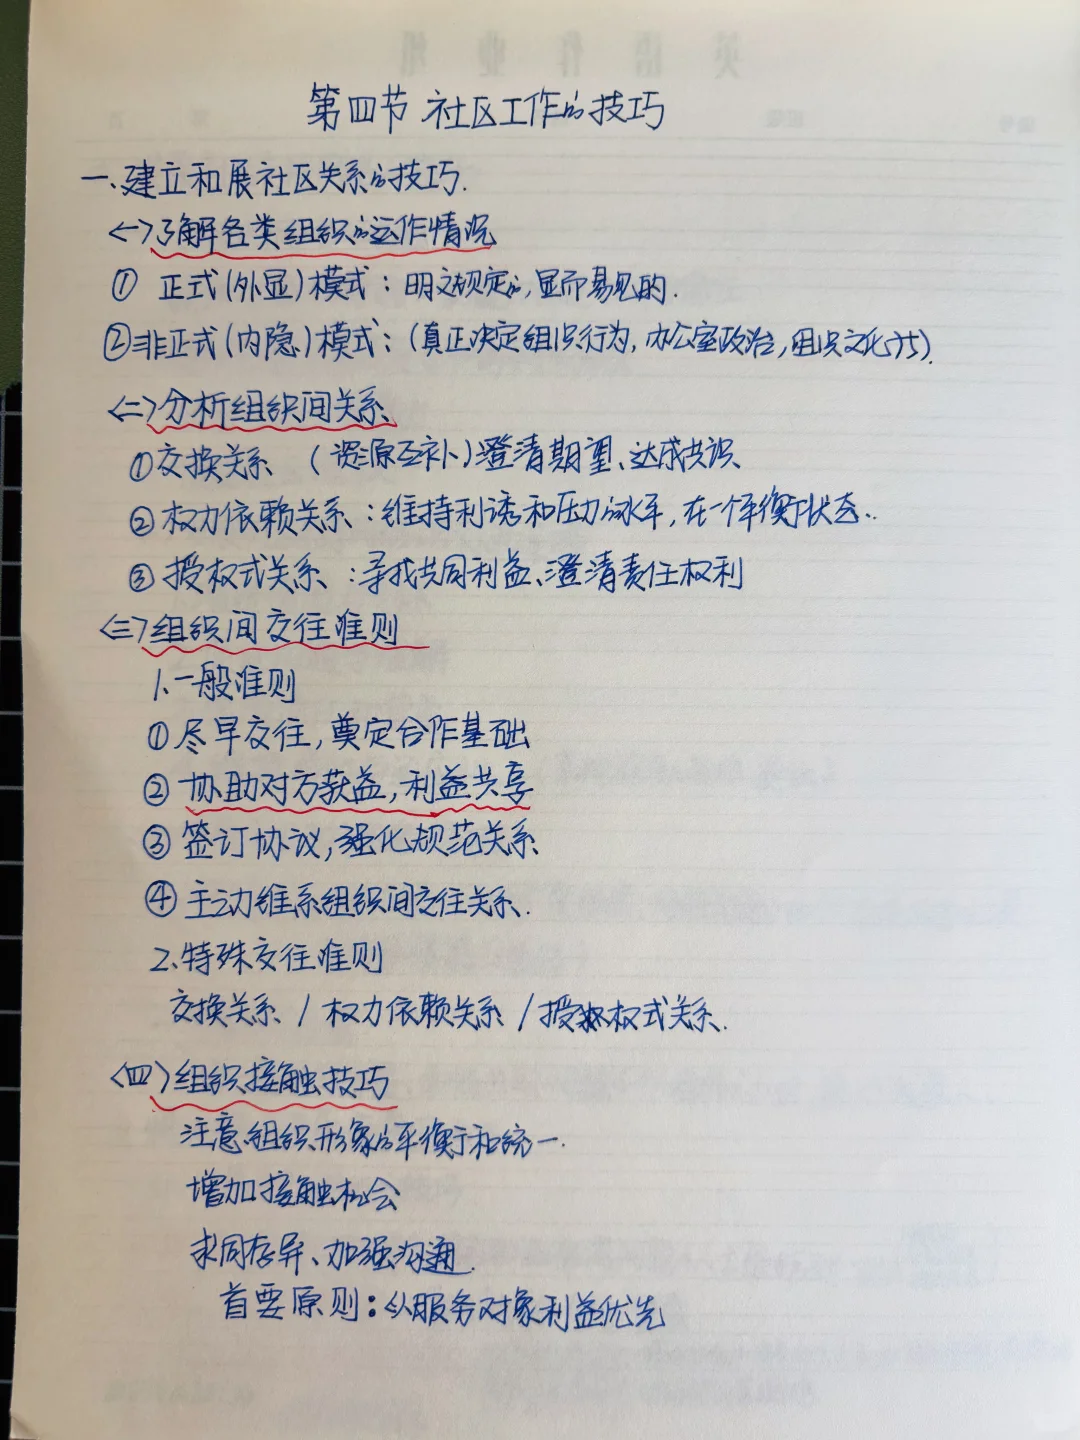 第四节 社区工作的技巧
一、建立和展社区关系的技巧.
<一>了解各类组织的运作情况
① 正式(外显)模式：明文规定的,显而易见的.
②非正式(内隐)模式：(真正决定组织行为,办公室政治,组织文化)
<二>分析组织间关系
①交换关系 (资源互补)澄清期望、达成共识、
②权力依赖关系：维持利诱和压力的水平,在一个平衡状态.
③授权式关系：寻找共同利益、澄清责任权利
<三>组织间交往准则
1.一般准则
①尽早交往,奠定合作基础
②协助对方获益,利益共享
③签订协议,强化规范关系
④主动维系组织间交往关系.
2.特殊交往准则
交换关系 / 权力依赖关系 / 授权式关系.
<四>组织接触技巧
注意组织形象的平衡和统一.
增加接触机会
求同存异、加强沟通.
首要原则：以服务对象利益优先